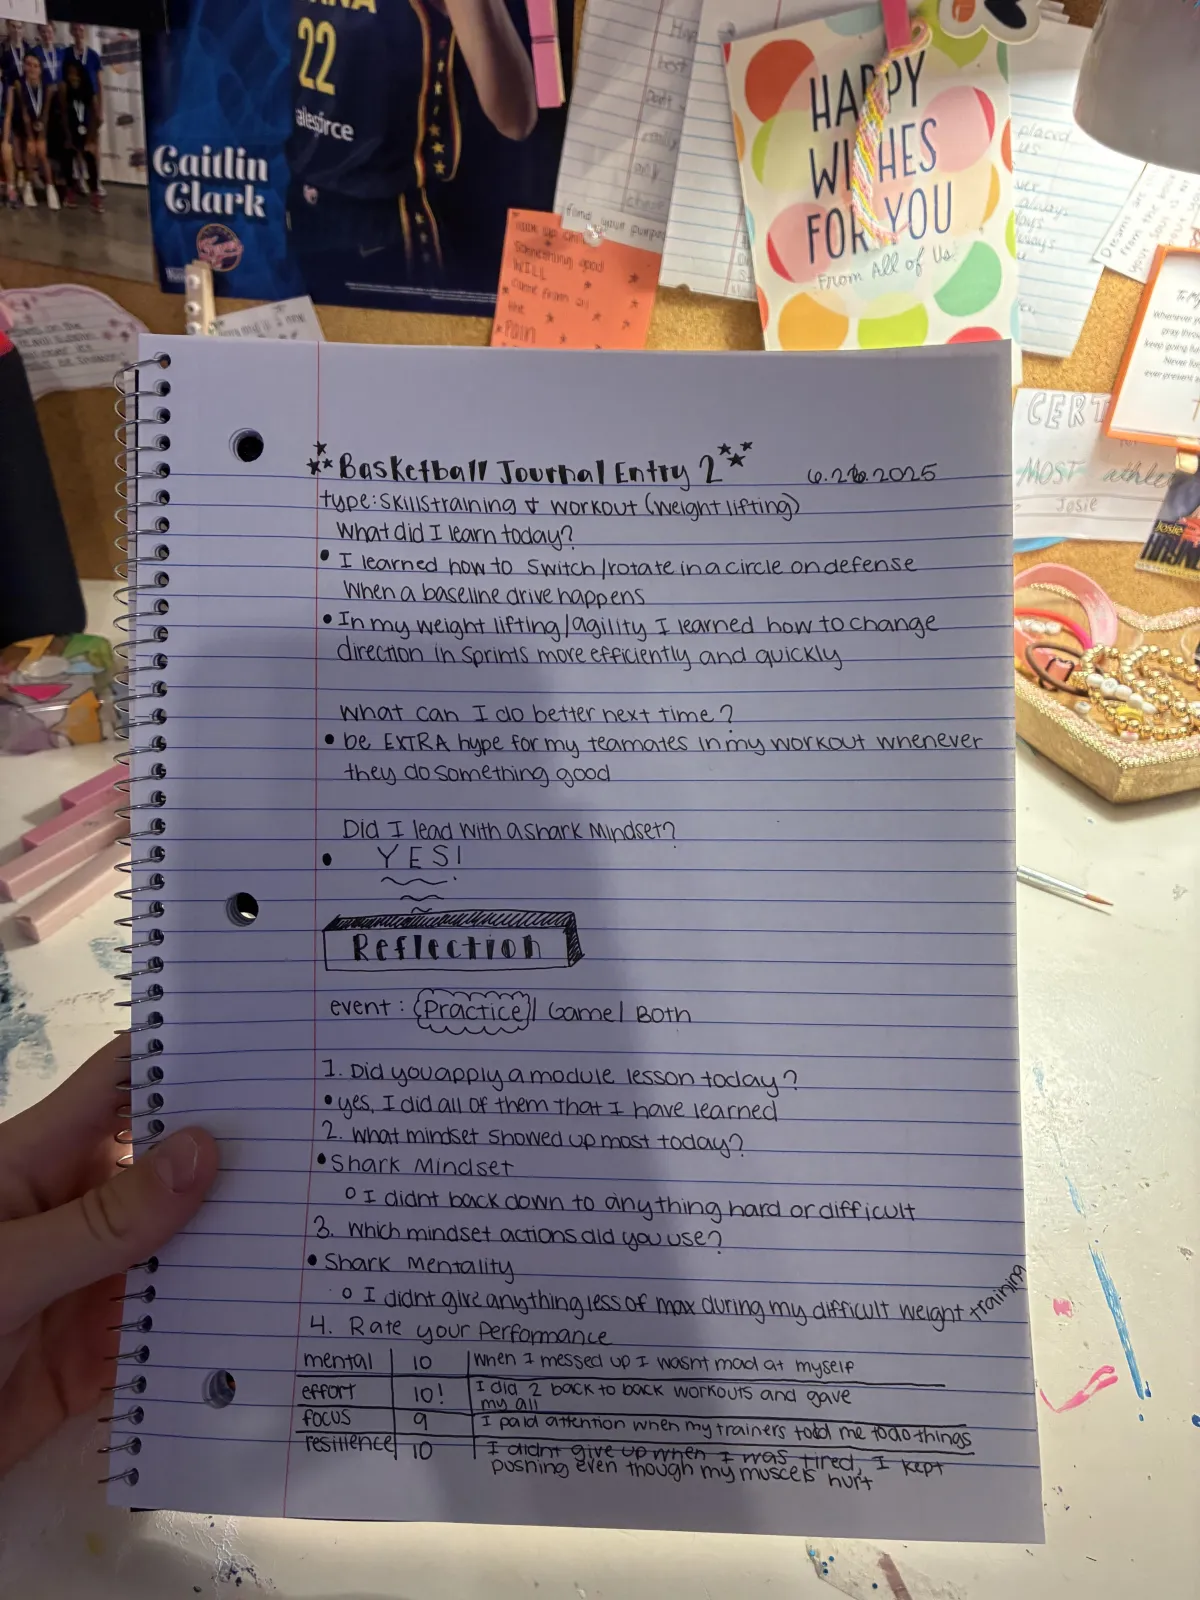 22
alesforce
Caitlin
Clark
find your purpose
something good
WILL
come from all
the
PAIN
HAPPY
WISHES
FOR YOU
From All of Us!
placed
us
always
days
CERT
MOST athlet
Josie
Josie
Whenever yo
pray throu
keep going fu
Never for
ever present
Basketball Journal Entry 2 6.26.2025
type: skillstraining & workout (weight lifting)
What did I learn today?
• I learned how to switch/rotate in a circle on defense
when a baseline drive happens
• In my weight lifting/agility I learned how to change
direction in sprints more efficiently and quickly
What can I do better next time?
• be EXTRA hype for my teamates in my workout whenever
they do something good
Did I lead with a shark Mindset?
• YES!
Reflection
event: Practice/ Game/ Both
1. Did you apply a module lesson today?
• yes, I did all of them that I have learned
2. What mindset showed up most today?
• Shark Mindset
o I didnt back down to anything hard or difficult
3. Which mindset actions did you use?
• Shark Mentality
o I didnt give anything less of max during my difficult weight training
4. Rate your Performance
mental 10 when I messed up I wasnt mad at myself
effort 10! I did 2 back to back workouts and gave
my all
focus 9 I paid attention when my trainers told me to do things
resilience 10 I didnt give up when I was tired, I kept
pushing even though my muscels hurt